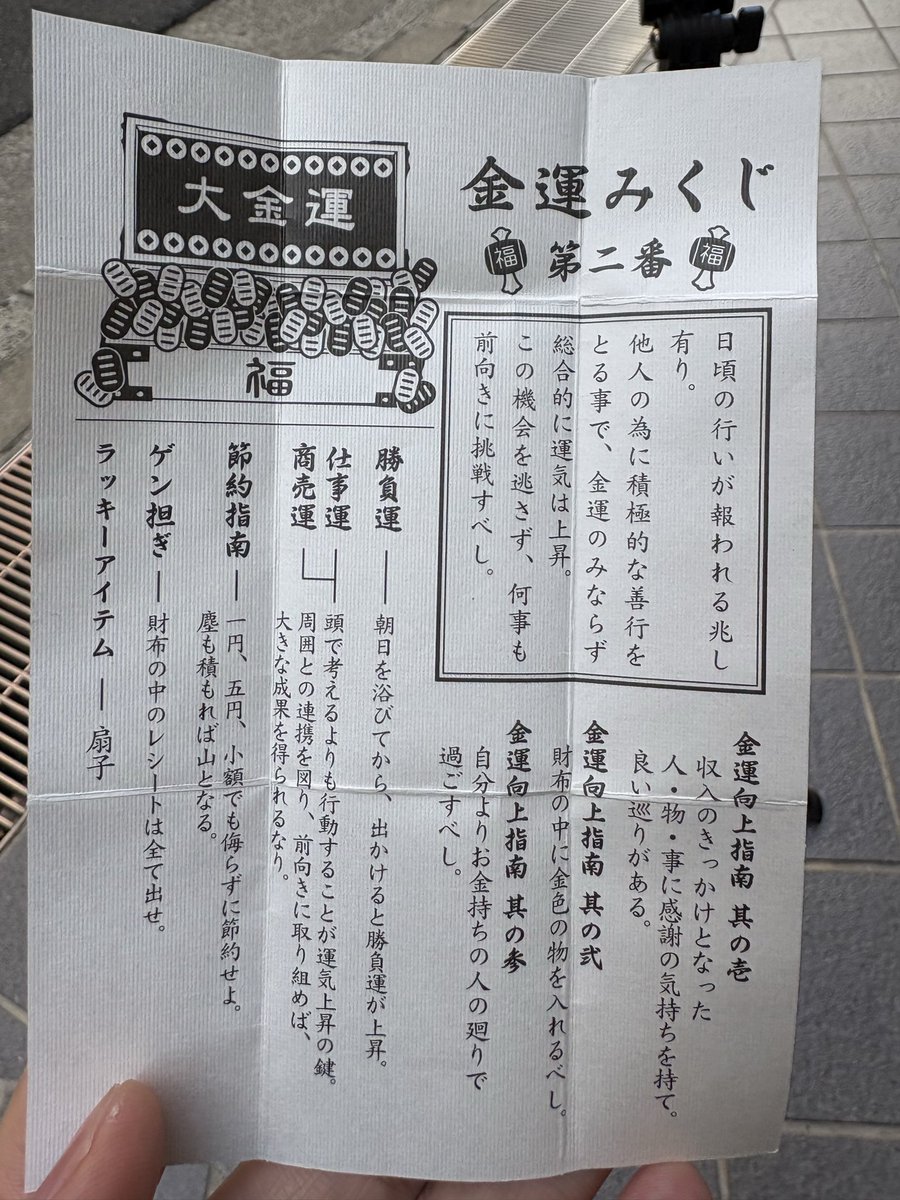 金運みくじ
福
第二番
福
日頃の行いが報われる兆し
有り。
他人の為に積極的な善行を
とる事で、金運のみならず
総合的に運気は上昇。
この機会を逃さず、何事も
前向きに挑戦すべし。
金運向上指南 其の壱
収入のきっかけとなった
人・物・事に感謝の気持ちを持て。
良い巡りがある。
金運向上指南 其の弐
財布の中に金色の物を入れるべし。
金運向上指南 其の参
自分よりお金持ちの人の廻りで
過ごすべし。
大金運
福
勝負運
朝日を浴びてから、出かけると勝負運が上昇。
仕事運
商売運
頭で考えるよりも行動することが運気上昇の鍵。
周囲との連携を図り、前向きに取り組めば、
大きな成果を得られるなり。
節約指南
一円、五円、小額でも侮らずに節約せよ。
塵も積もれば山となる。
ゲン担ぎ
財布の中のレシートは全て出せ。
ラッキーアイテム
扇子